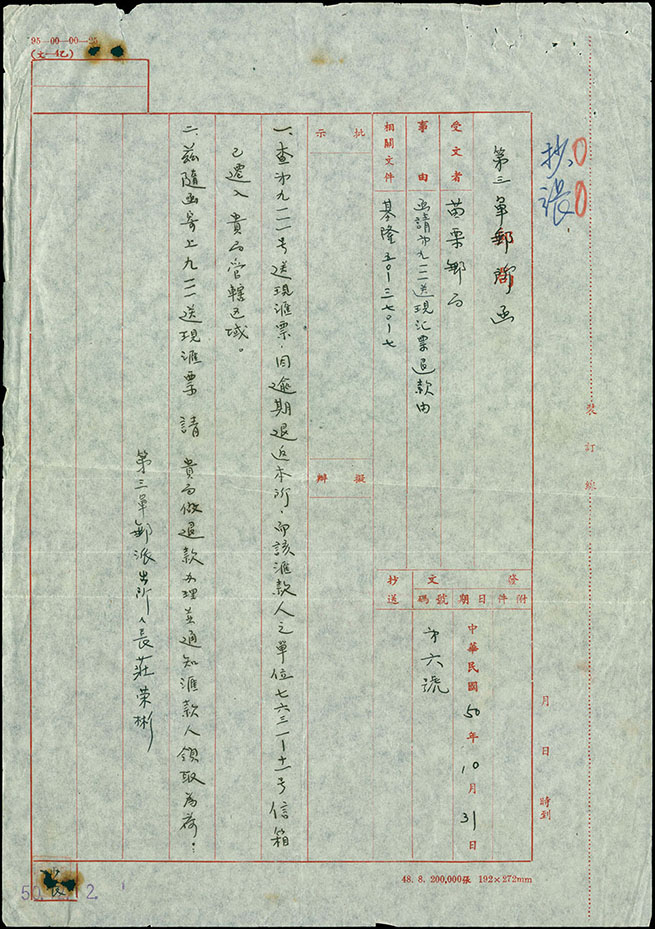 95—00—00—25
(文—4乙)
抄
裝訂線
月 日 時到
第三軍郵
函
受文者
苗栗郵局
事由
函請第九一一送現汇票退款由
相關文件
基隆五〇一三七〇一七
發文
附件
日期
號碼
中華民國50年10月31日
第六號
抄送
批示
擬辦
一、查第九一一号送現滙票,因逾期退返本所,而該滙款人之單位七六三一—十一号信箱
已遷入貴局管轄区域。
二、茲隨函寄上九一一送現滙票 請 貴局做退款办理並通知滙款人領取為荷.
第三軍郵派出所所長莊荣彬
48. 8. 200,000張 192×272mm